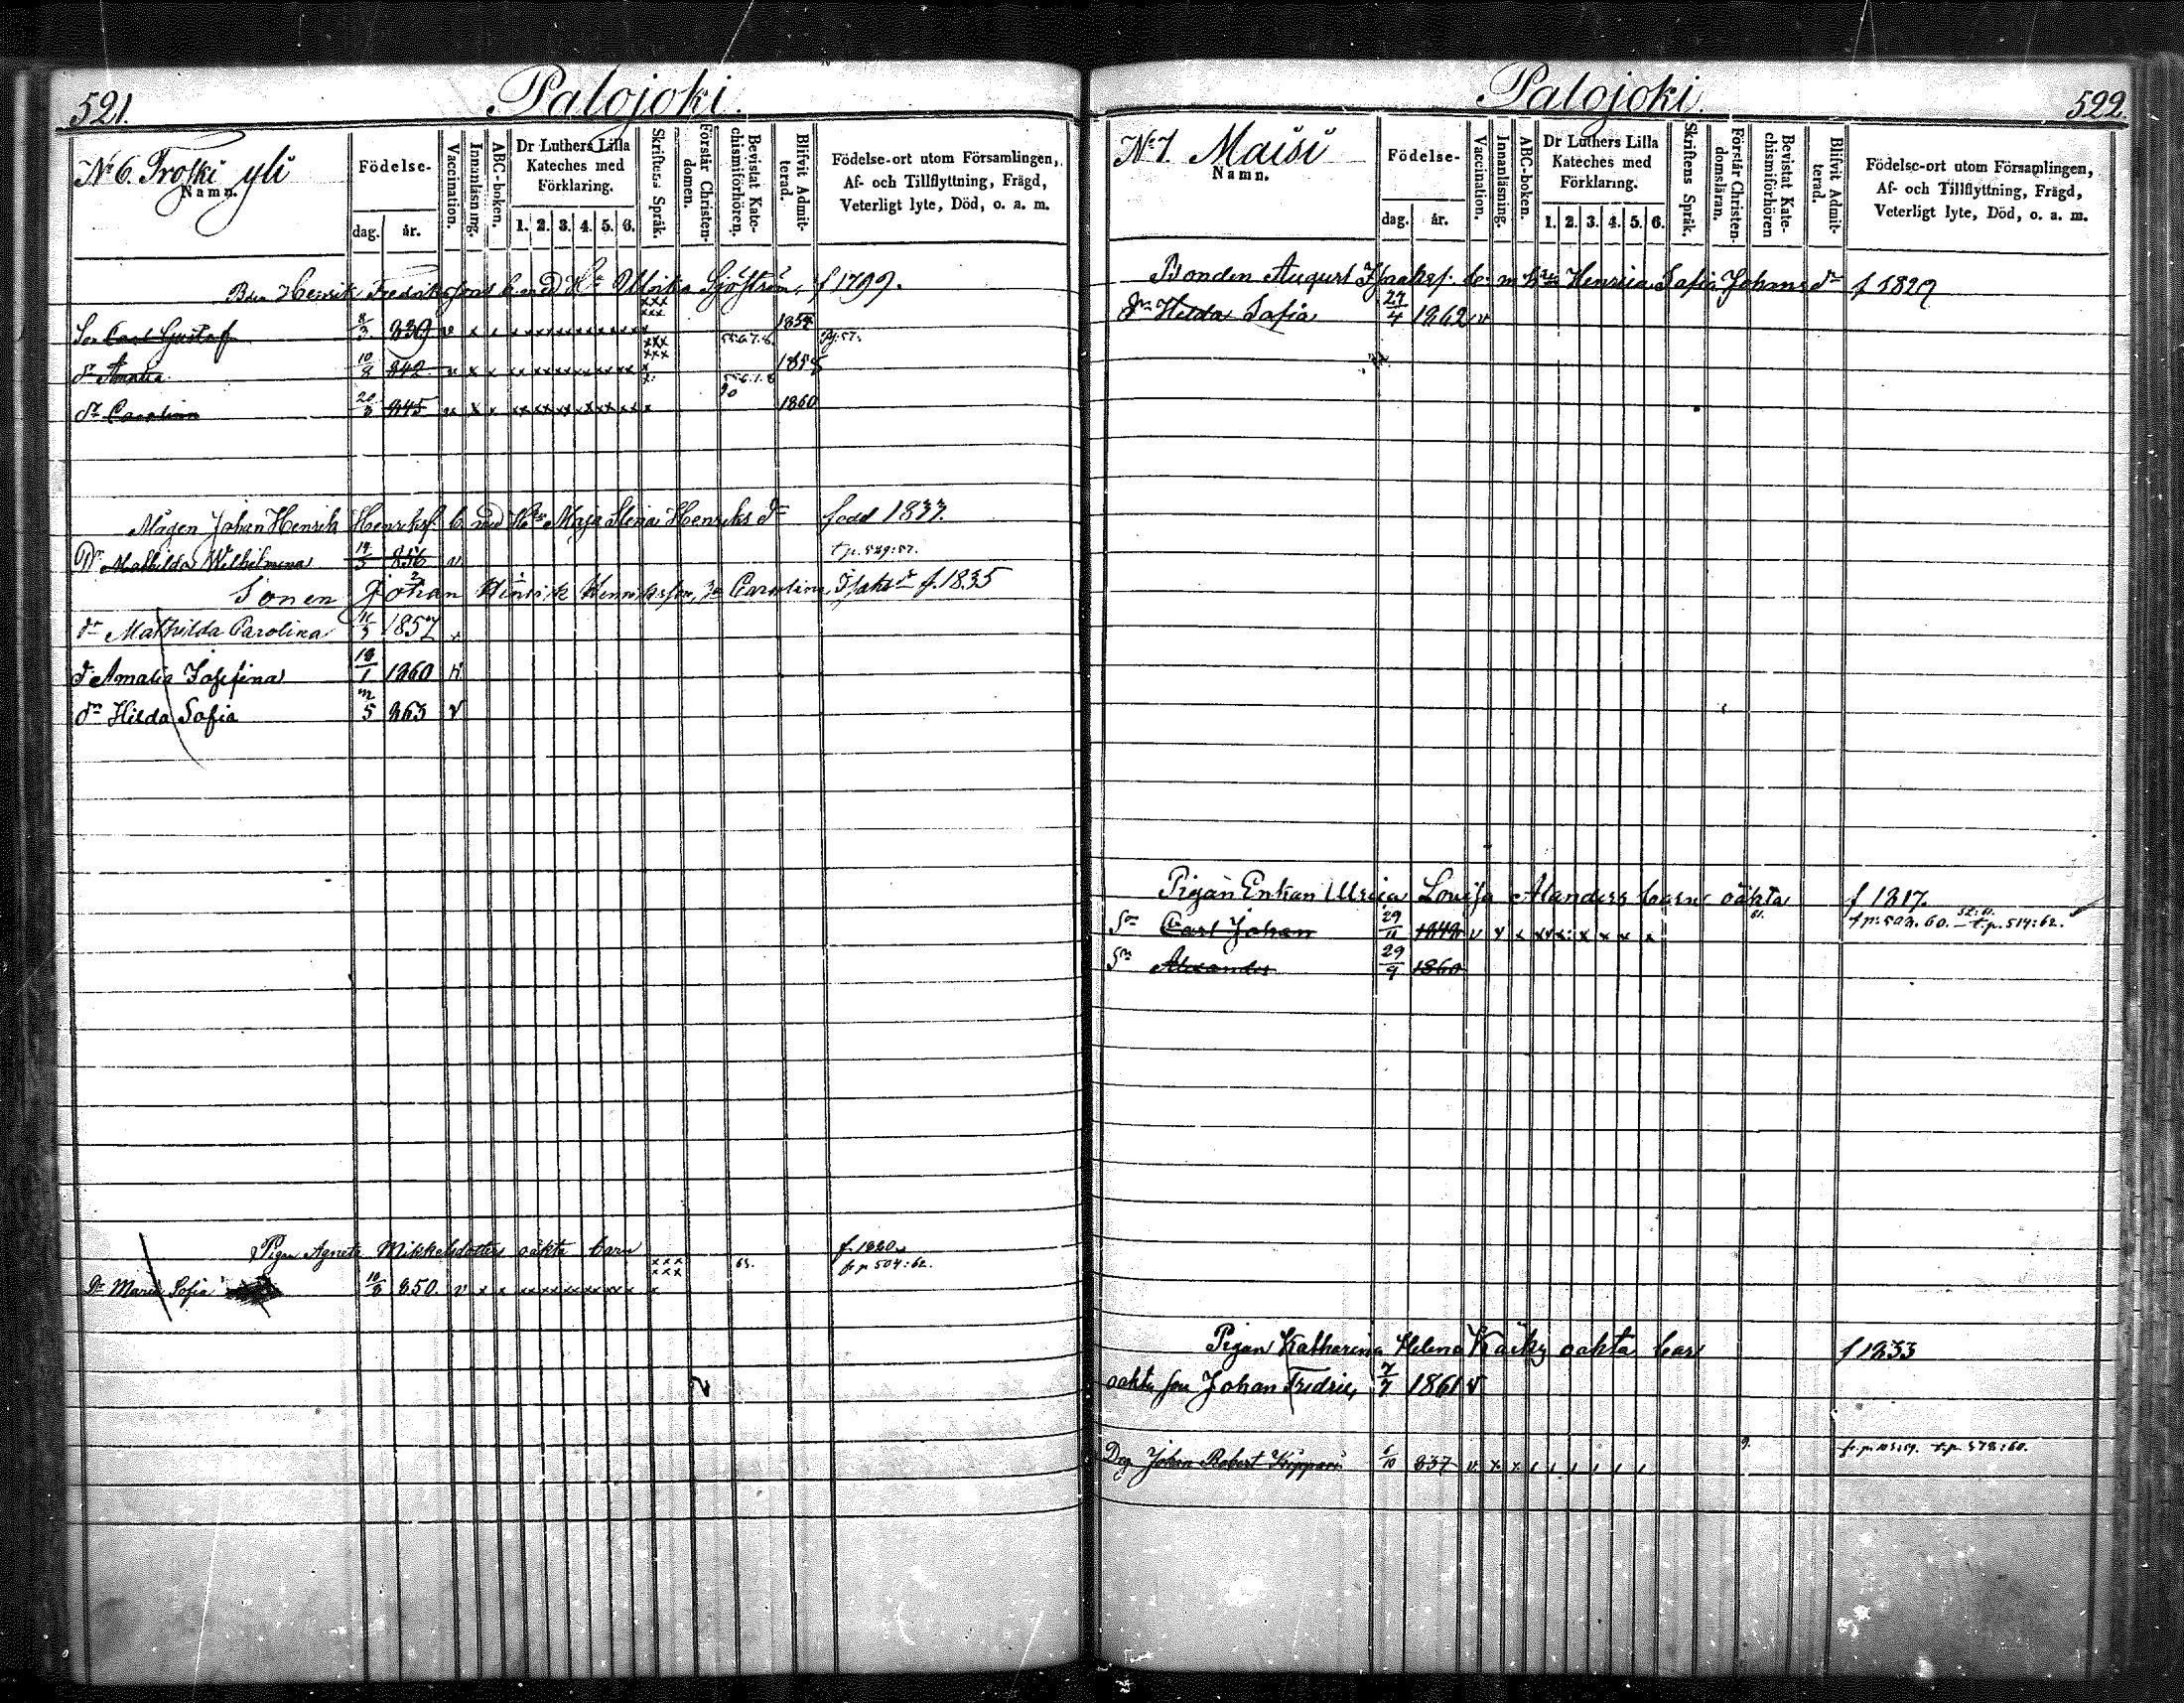 521.
Palojoki.
No 6. Troski yli
Namn.
Födelse-
dag.
år.
Vaccination.
Innanläsning.
ABC-boken.
Dr Luthers Lilla
Kateches med
Förklaring.
1. 2. 3. 4. 5. 6.
Skriftens Språk.
Förstår Christen-
domen.
Bevistat Kate-
chismiförhören.
Blifvit Admit-
terad.
Födelse-ort utom Församlingen,
Af- och Tillflyttning, Frägd,
Veterligt lyte, Död, o. a. m.
Henrik Fredriksons b. med Ulrika Sjöström, f 1799.
Son Carl Gustaf 8/3 839 v x x 185
dr Amalia 10/8 842 v x x 1858
dr Carolina 845 v x x 1860
Mågen Johan Henrik Henriksf. b. med Maja Stina Henriks dr född 1833.
Dr Mathilda Wilhelmina 856 v t.p. 529:57.
Sonen Johan Henrik Henriksson, Carolina f. 1835
dr Mathilda Carolina 1857 v
dr Amalia Josefina 18/1 1860 v
dr Hilda Sofia 5 863 v
Pigan Agneta Mikkelsdotters oäkta barn f. 1820
63. fr. p. 504:62.
Dr Maria Sofia 850. v x x

Palojoki.
522.
No 7. Maisi
Namn.
Födelse-
dag.
år.
Vaccination.
Innanläsning.
ABC-boken.
Dr Luthers Lilla
Kateches med
Förklaring.
1. 2. 3. 4. 5. 6.
Skriftens Språk.
Förstår Christen-
domsläran.
Bevistat Kate-
chismiförhören
Blifvit Admit-
terad.
Födelse-ort utom Församlingen,
Af- och Tillflyttning, Frägd,
Veterligt lyte, Död, o. a. m.
Bonden August b. m Henrica Sofia Johans dr f 1827
dr Hilda Sofia 27/4 1862 v
Pigan Enkan Ulrica Lovisa Alanders barn oäkta f 1817.
61. t.p. 514:62.
Sn Carl Johan 29/11 1842 v v x
Sn Alexander 29/9 1860
Pigan Katharina Helena oäkta barn f 1833
oäkta son Johan Fredric 7/7 1861 v
Drg Johan Robert 837 v x x t.p. 578:60.